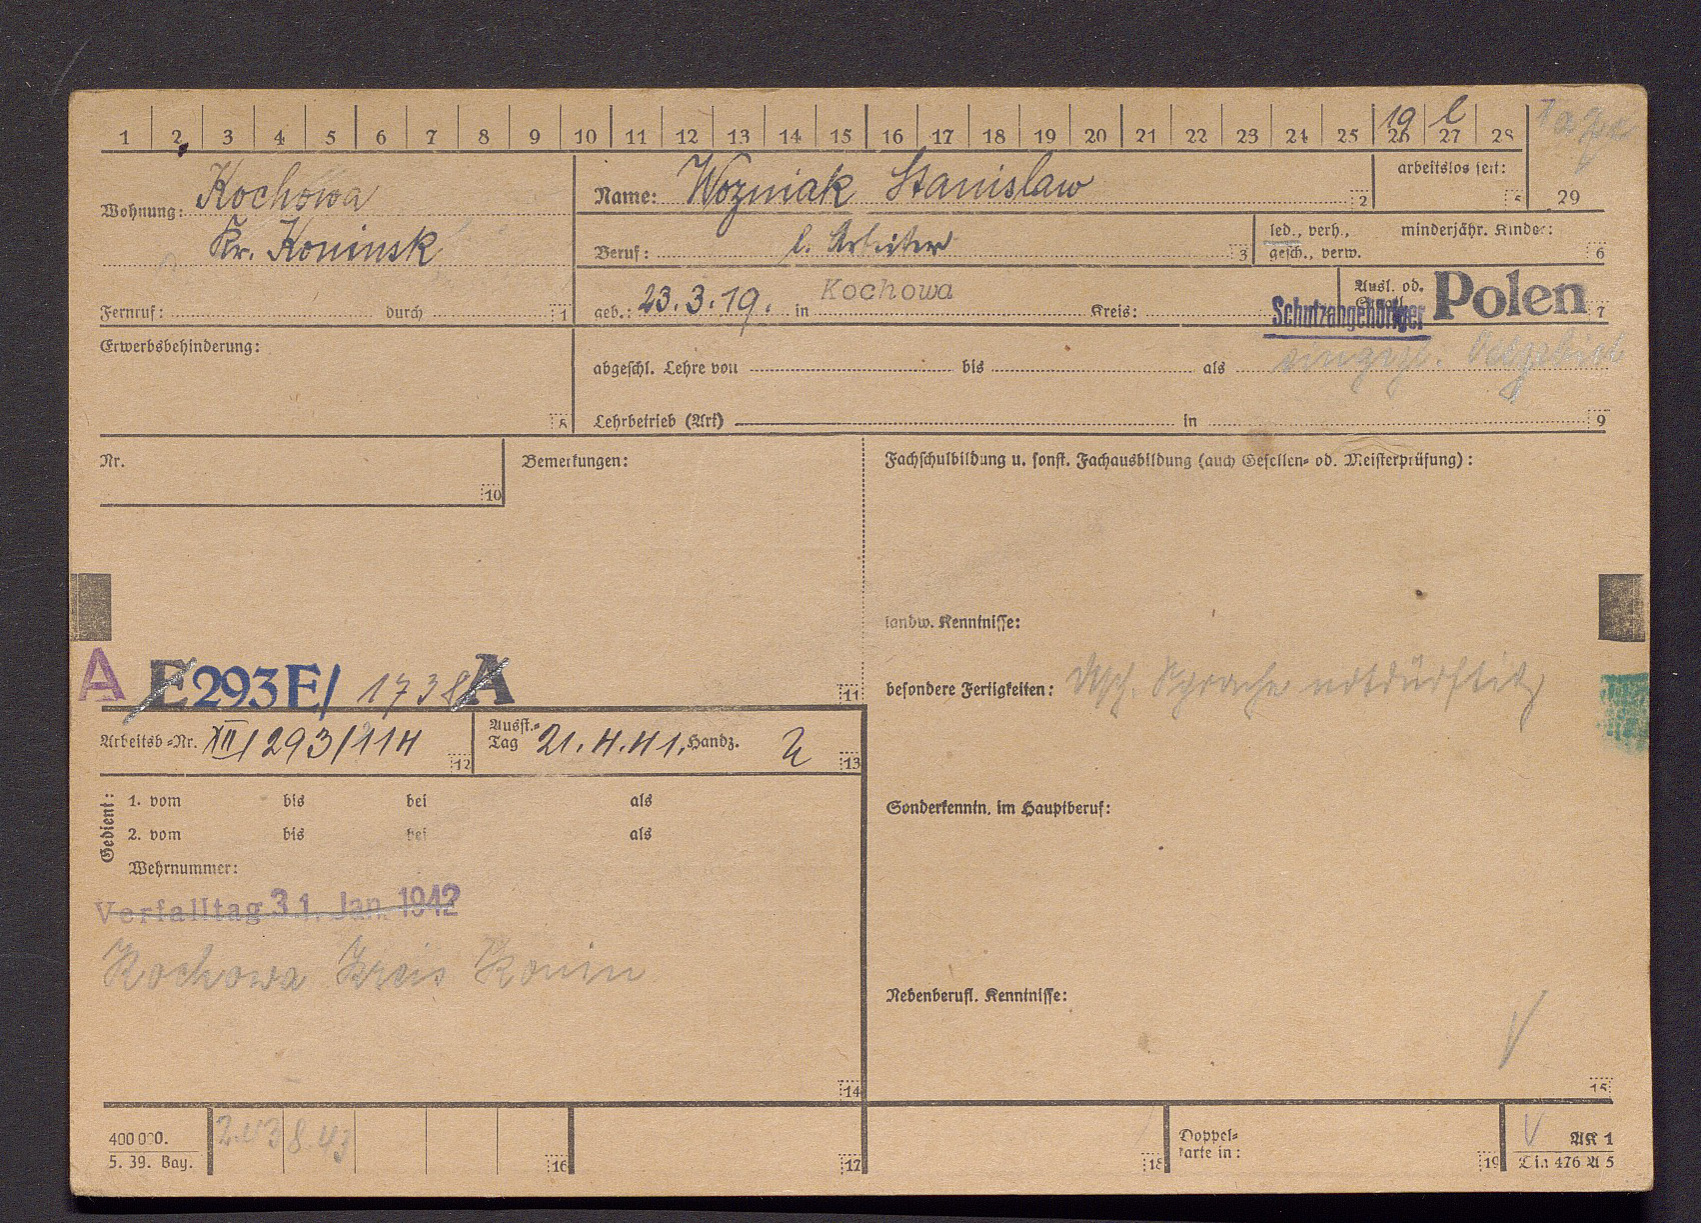 1 2 3 4 5 6 7 8 9 10 11 12 13 14 15 16 17 18 19 20 21 22 23 24 25 26 27 28
19 l
Wohnung: Kochowa
Kr. Koninsk
Fernruf: durch 1
Name: Wozniak Stanislaw 2
arbeitslos seit: 5
29
Beruf: l. Arbeiter 3
led., verh., gesch., verw.
minderjähr. Kinder: 6
geb.: 23.3.19. in Kochowa Kreis:
Ausl. od.
Schutzangehöriger Polen 7
Erwerbsbehinderung:
8
abgeschl. Lehre von bis als
eingegl.
Lehrbetrieb (Art) in 9
Nr.
10
Bemerkungen:
A E 293 E/ 1738 A
11
Fachschulbildung u. sonst. Fachausbildung (auch Gesellen- od. Meisterprüfung):
landw. Kenntnisse:
besondere Fertigkeiten: Dtsch. Sprache notdürftig
Sonderkenntn. im Hauptberuf:
Nebenberufl. Kenntnisse:
15
Arbeitsb.-Nr. XII/293/114 12
Ausst.-Tag 21.4.41. Handz. 13
Gedient:
1. vom bis bei als
2. vom bis bei als
Wehrnummer:
Verfalltag 31. Jan. 1942
Kochowa Kreis Konin
14
400 000.
5. 39. Bay.
2.43 8.43
16
17
18
Doppel-
karte in:
19
AK 1
Din 476 A 5